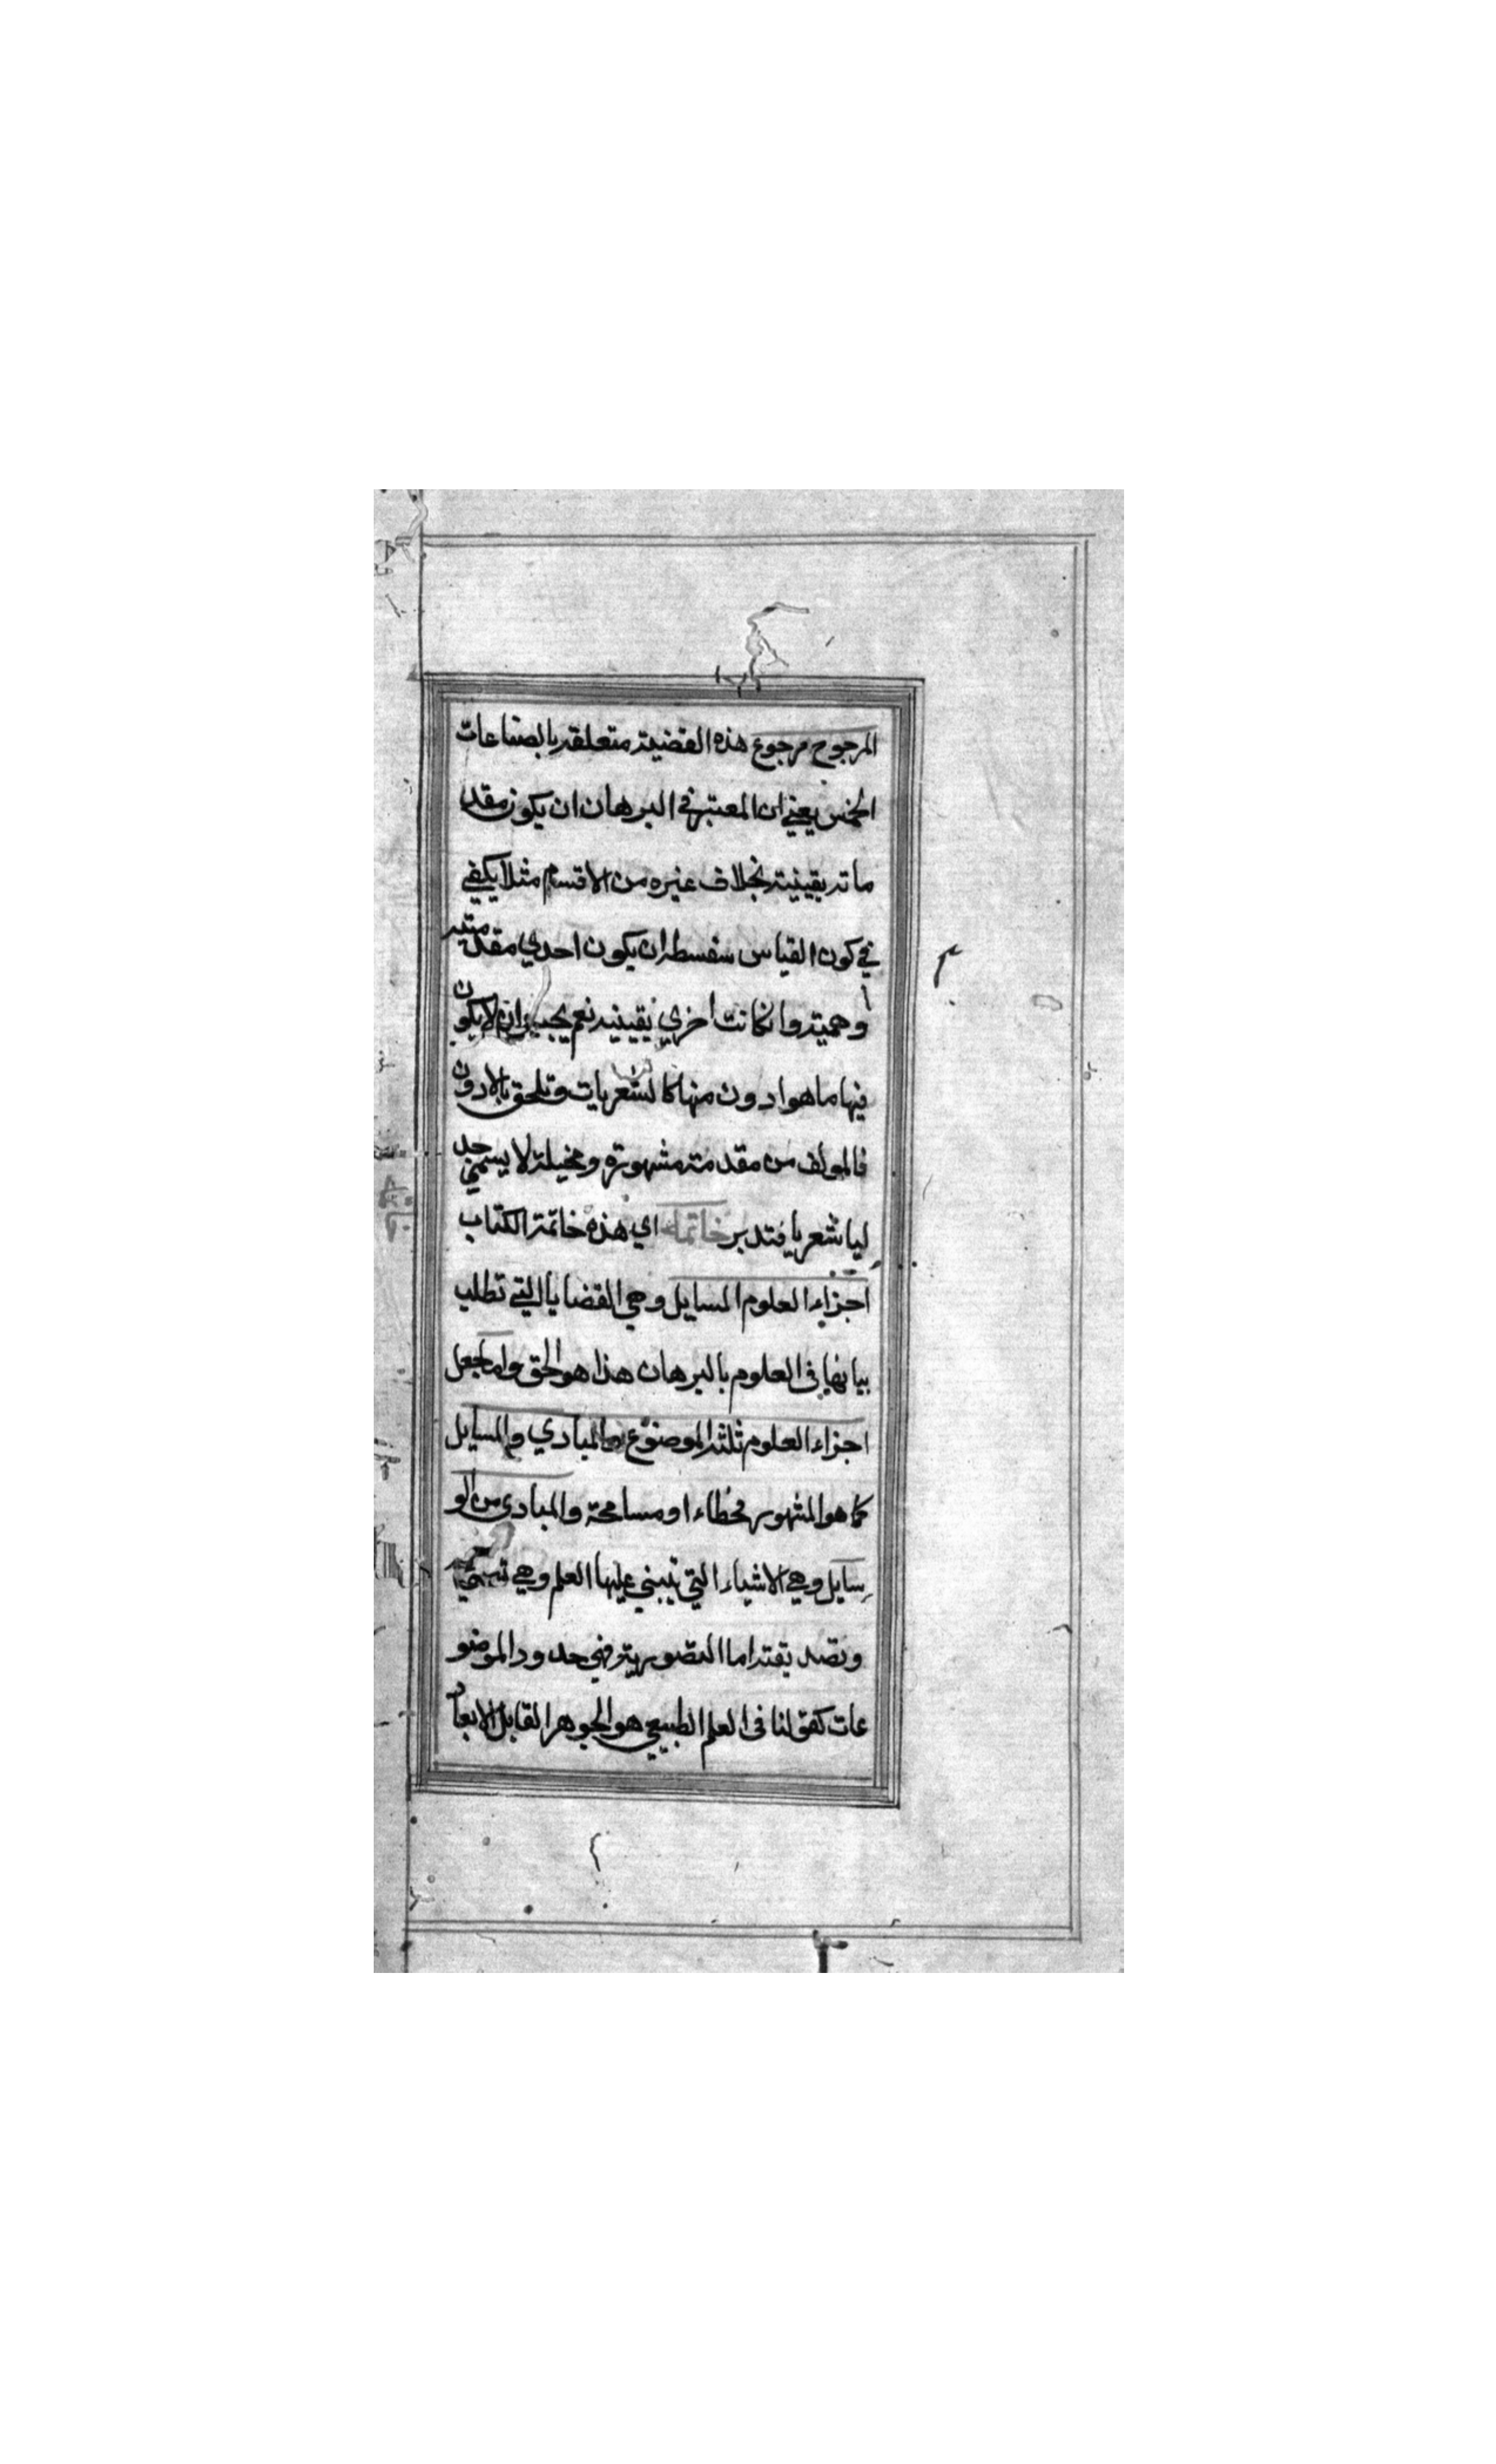 المرجوح مرجوع هذه القضية متعلقة بالصناعات
الخمس يعني ان المعتبر في البرهان ان يكون مقد
ماته يقينية بخلاف غيره من الاقسام مثلا يكفي
في كون القياس سفسطه ان يكون احدي مقدمتيه
وهمية وانكانت اخري يقينيه نعم يجب ان لا يكون
فيها ما هو ادون منها كالشعريات وتلحق بالادون
فالمولف من مقدمته مشهورة ومخيلة لا يسمي جد
ليا شعريا فتدبر خاتمه اي هذه خاتمة الكتاب
اجزاء العلوم المسايل وهي القضايا التي تطلب
بيانها في العلوم بالبرهان هذا هو الحق واما جعل
اجزاء العلوم ثلثة الموضوع والمبادي والمسايل
كما هو المشهور فخطاء او مسامحة والمبادي من الو
سايل وهي الاشياء التي تبني عليها العلم وهي
وتصديقته اما التصورية فهي حدود الموضو
عات كقولنا في العلم الطبيعي هو الجوهر القابل الابعاد